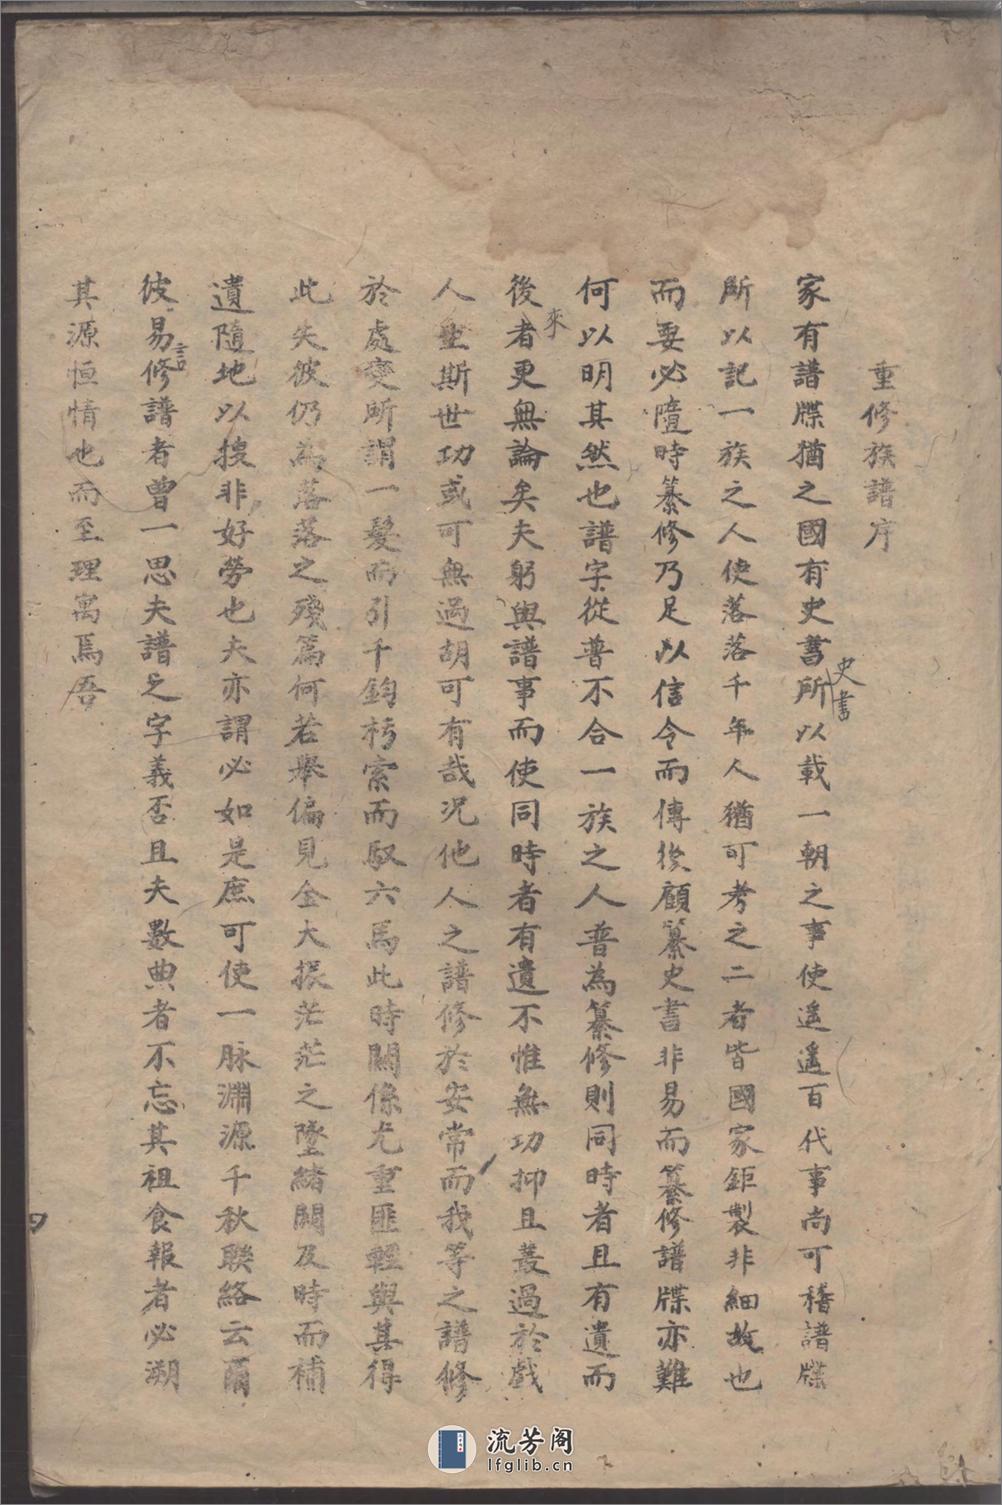 重修族譜序
家有譜牒猶之國有史書所以載一朝之事使遥遥百代事尚可稽譜牒
史書
所以記一族之人使落落千年人猶可考之二者皆國家鉅製非細故也
而要必隨時纂修乃足以信今而傳後顧纂史書非易而纂修譜牒亦難
何以明其然也譜字從普不合一族之人普為纂修則同時者且有遺而
後者更無論矣夫躬與譜事而使同時者有遺不惟無功抑且叢過於戲
來
人生斯世功或可無過胡可有哉况他人之譜修於安常而我等之譜修
於處變所謂一髮而引千鈞朽索而馭六馬此時關係尤重匪輕與其得
此失彼仍為落落之殘篇何若舉偏見全大振茫茫之墜緒闕及時而補
遺隨地以搜非好勞也夫亦謂必如是庶可使一脉淵源千秋聯絡云爾
彼易修譜者曾一思夫譜之字義否且夫數典者不忘其祖食報者必溯
言
其源恒情也而至理寓焉吾
流芳阁
lfglib.cn